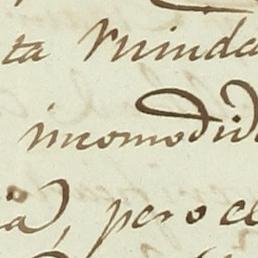 ta Vuinda
incomodid
ia), pero el